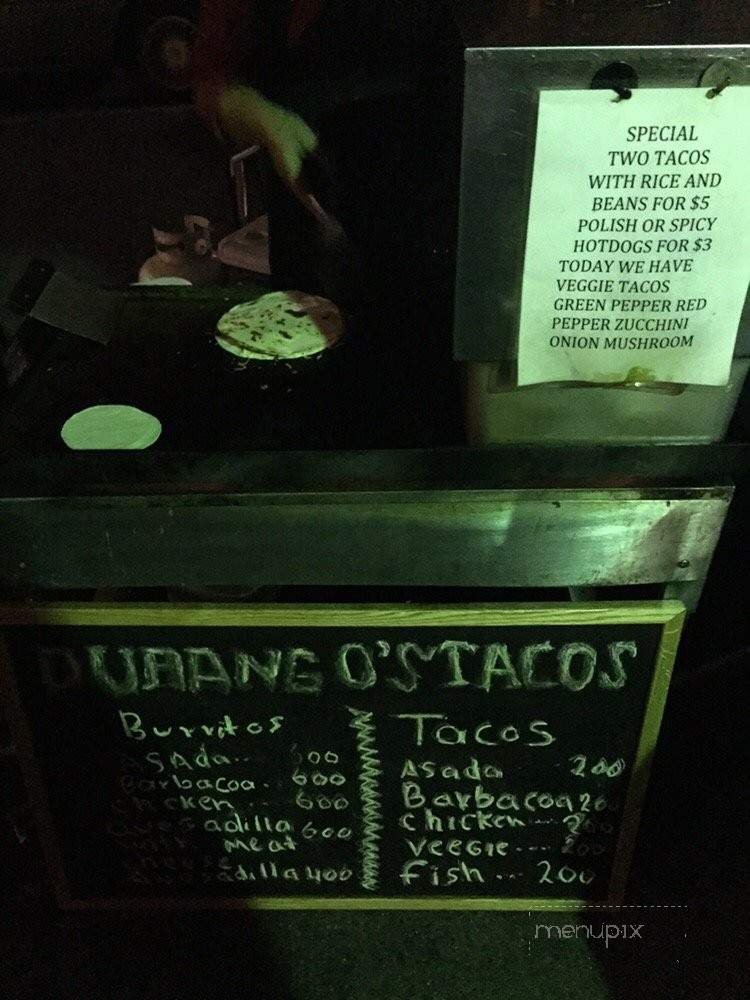 SPECIAL
TWO TACOS
WITH RICE AND
BEANS FOR $5
POLISH OR SPICY
HOTDOGS FOR $3
TODAY WE HAVE
VEGGIE TACOS
GREEN PEPPER RED
PEPPER ZUCCHINI
ONION MUSHROOM
DURANGO'S TACOS
Burritos
ASAda.. 600
Barbacoa.. 600
Chicken... 600
Quesadilla 600
with meat
cheese
quesadilla 400
Tacos
Asada 200
Barbacoa 200
chicken --- 200
veegie --- 200
fish... 200
menupix